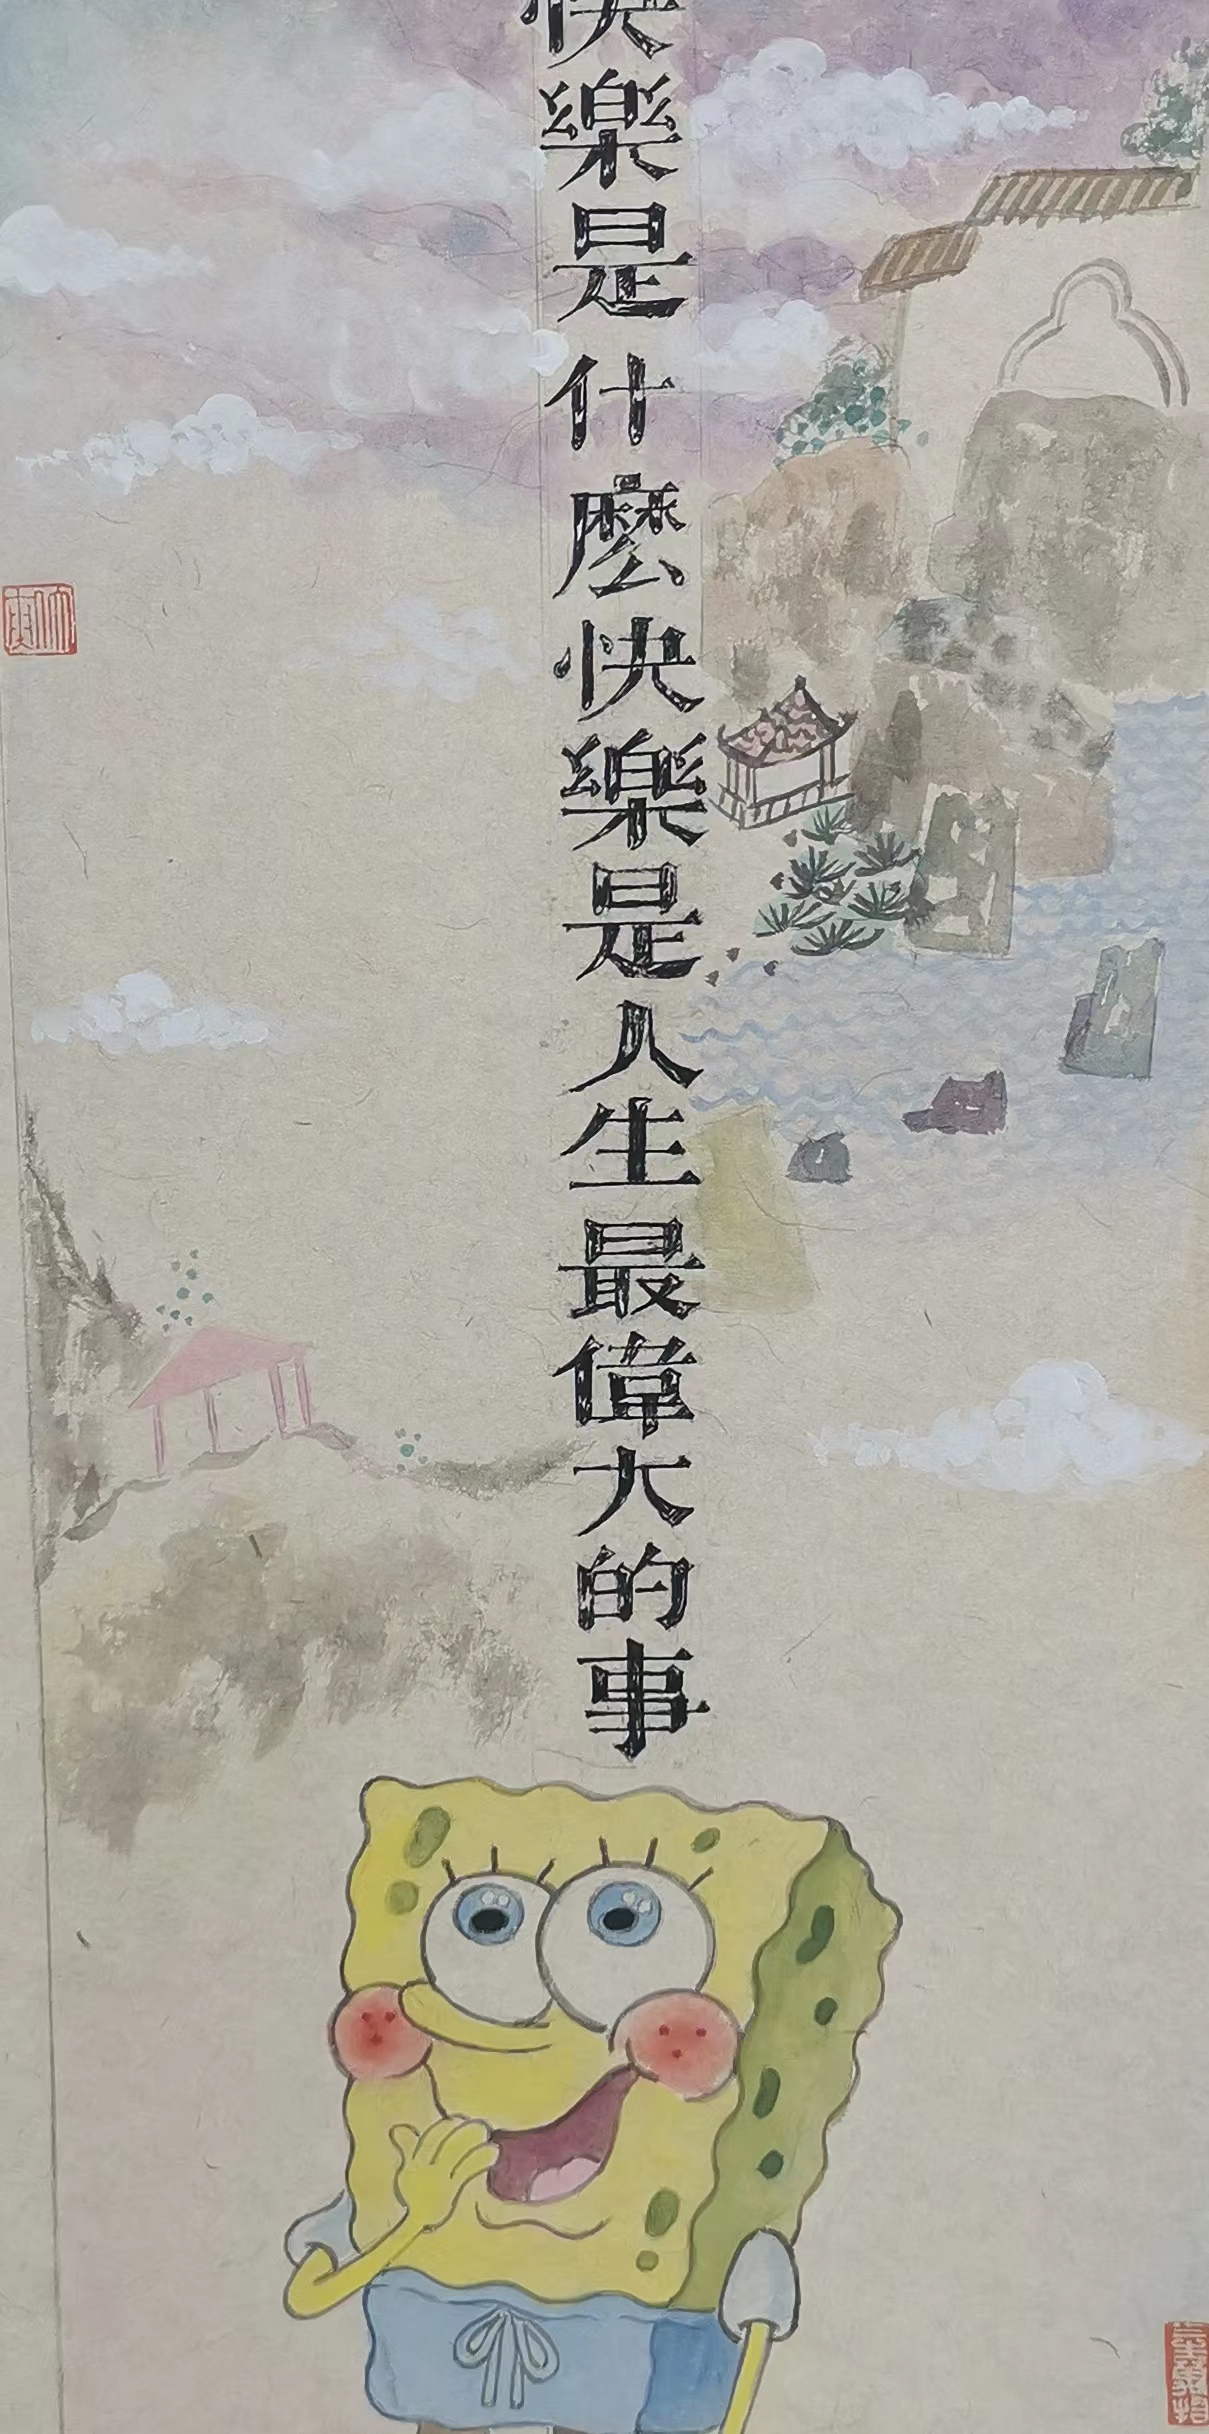 快樂是什麼快樂是人生最偉大的事